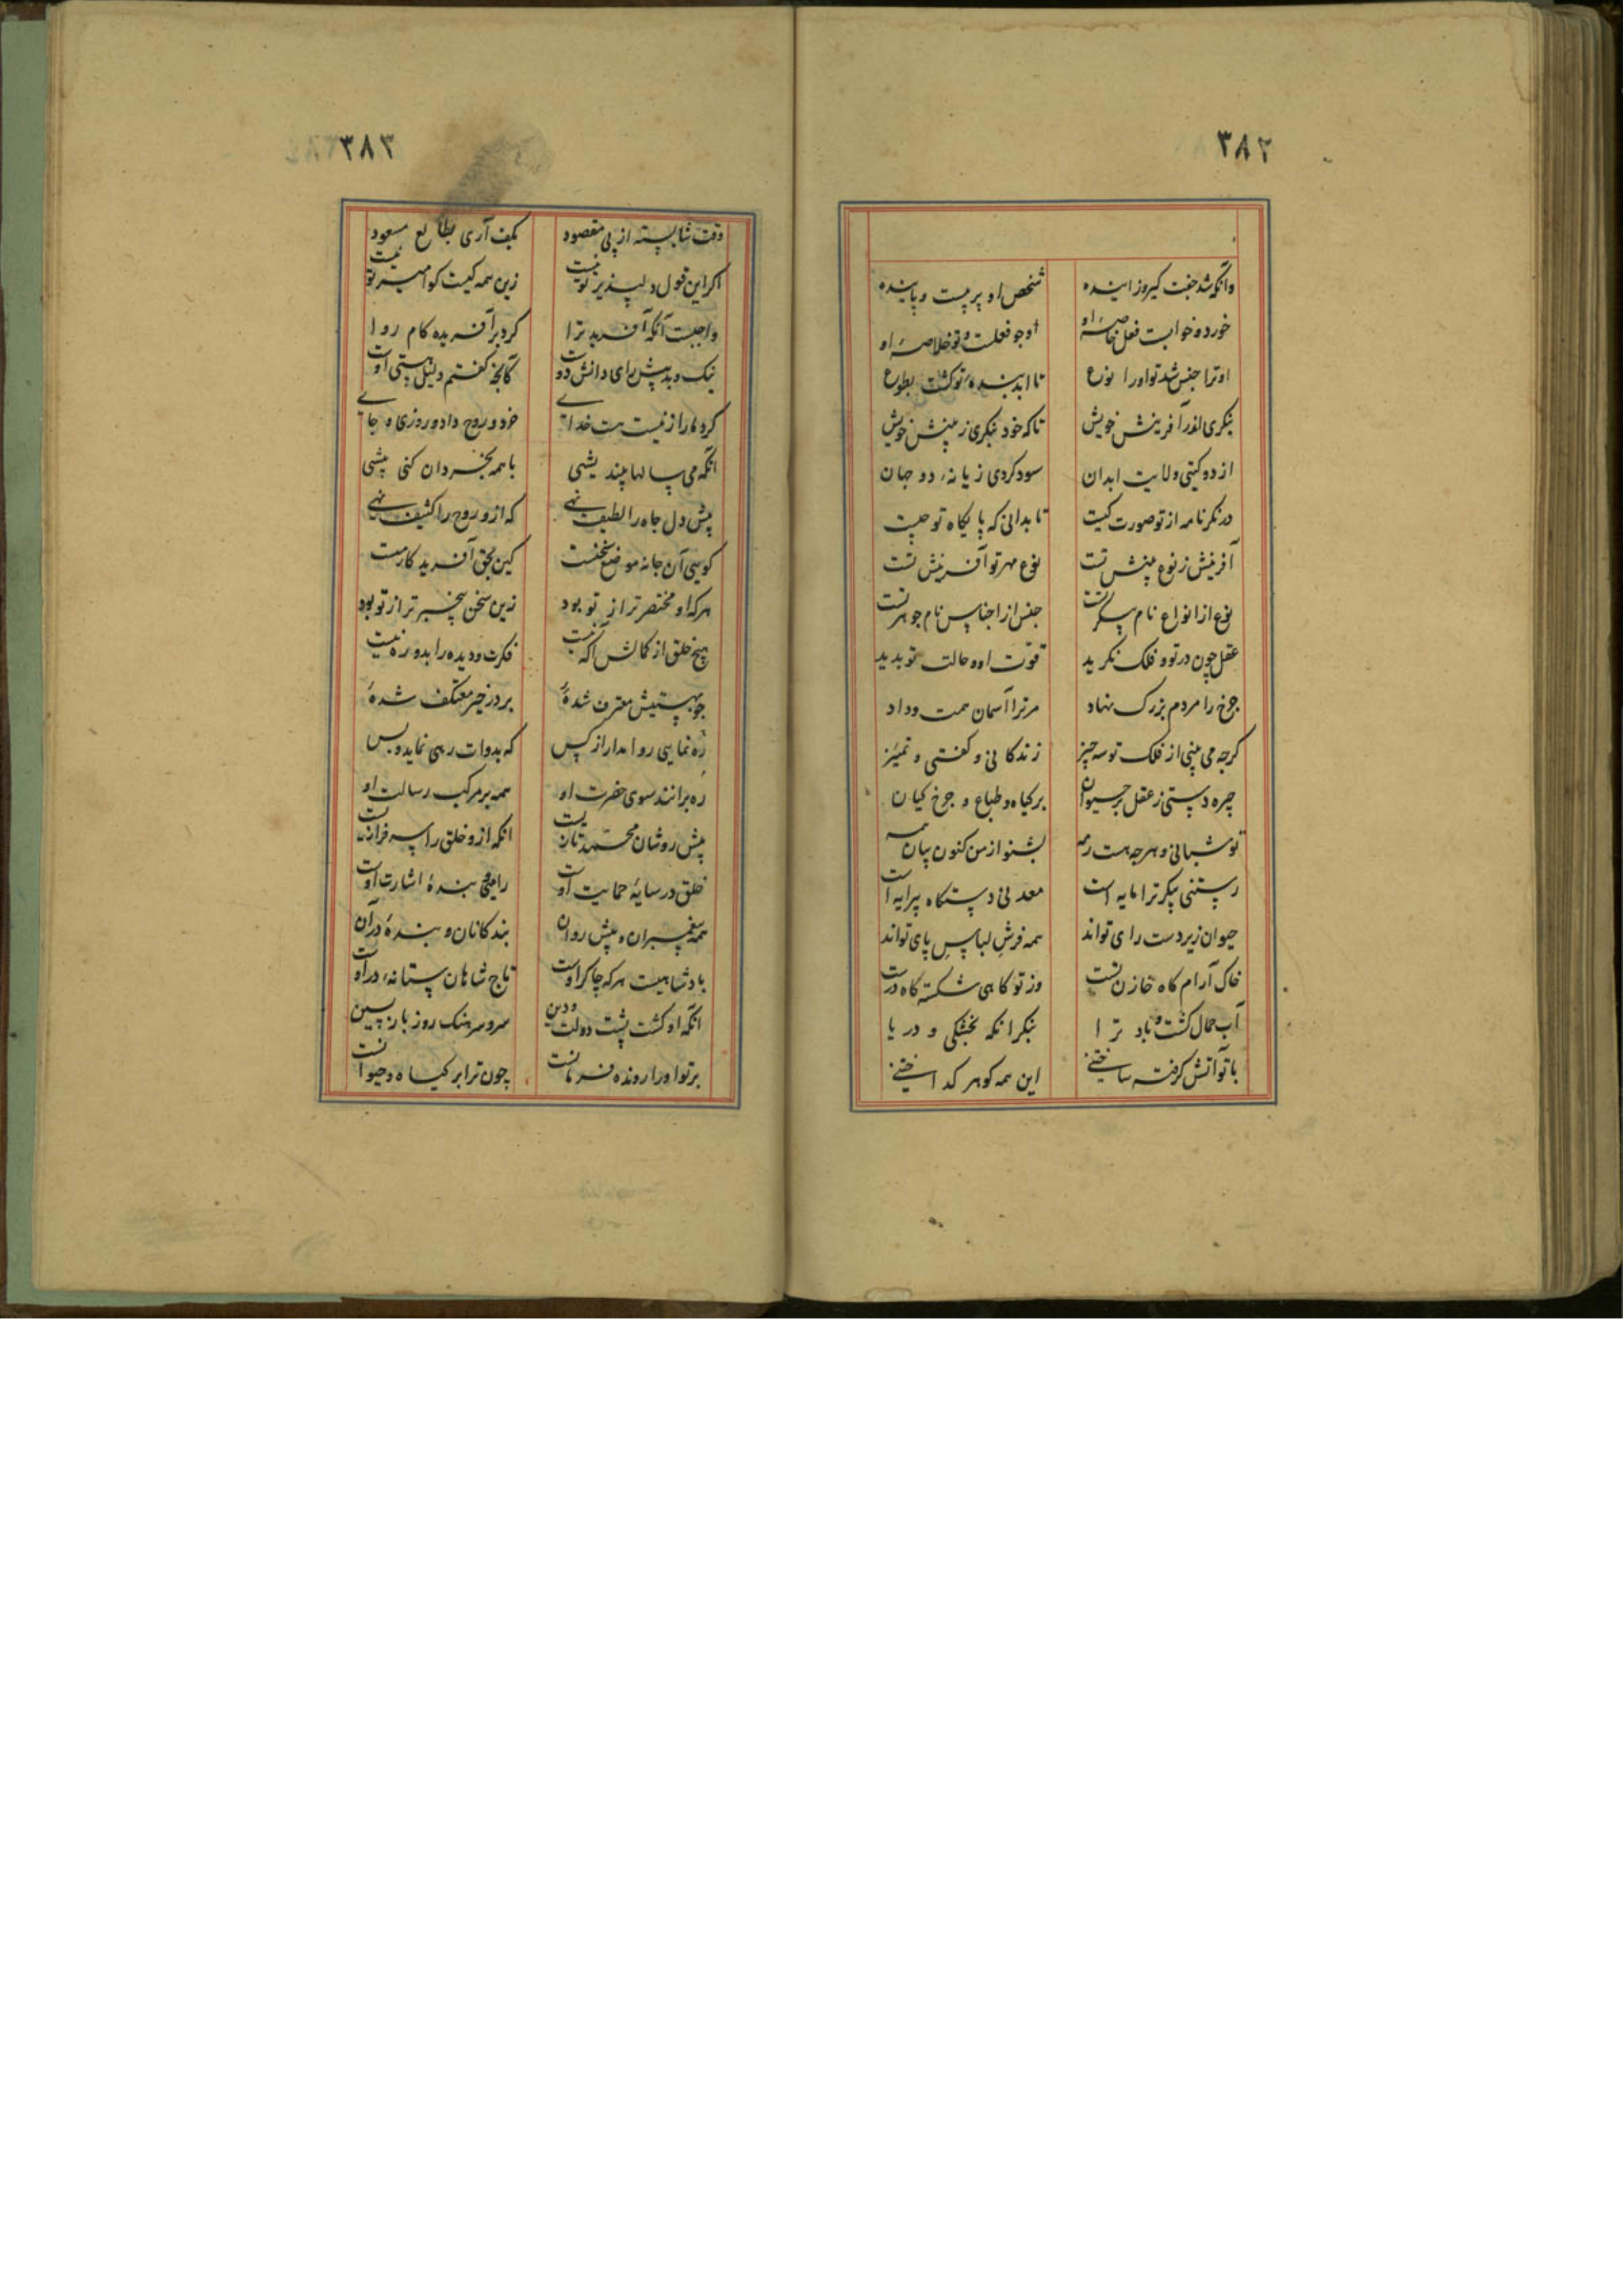 ۳۸۲
وانکه شد جفت گیر و زاینده شخص او پر پست و پاینده
خورد و خوابست فعل خاصهٔ او او چو فعلست و تو خلاصهٔ او
او ترا جنس شد تو او را نوع تا ابد بندهٔ تو کشت بطوع
بنکری اندر آفرینش خویش تا که خود بنکری ز بینش خویش
از دو کیتی ولایت ابدان سود کردی زیانه دو جهان
درنکر نامه از تو صورت کیست تا بدانی که پایکاه تو چیست
آفرینش ز نوع بینش تست نوع مهر تو آفرینش تست
نوع از انواع نام پیکر تست جنس از اجناس نام جوهر تست
عقل چون در تو و فلک نکرید قوت او و حالت تو بدید
چرخ را مردم بزرک نهاد مر ترا آسمان همت و داد
کرچه می بینی از فلک تو سه چیز زندکانی و کفتی و تمییز
چیره دستی ز عقل بر حیوان بر کیاه و طباع و چرخ کیان
تو شبانی و هرچه هست رمه بشنو از من کنون بیان همه
رستنی پیکر ترا مایه است معدنی دستکاه پیرایه است
حیوان زیردست رای تواند همه فرش لباس پای تواند
خاک آرام کاه خازن تست وز تو کاهی شکسته کاه درست
آب حمال کشت و باد ترا بنکر انکه بخشکی و دریا
با تو آتش کرفته ساختنی این همه کوهر کداختنی
۳۸۳
وقت شایسته از پی مقصود بکف آری بطالع مسعود
اکر این قول دلپذیر تو نیست زین همه کیست کو امیر تو نیست
واجبست آنکه آفرید ترا کرد بر آفریده کام روا
نیک و بد پیش رای دانش دوست کانچه کفتم دلیل هستی اوست
کرد ما را ز نیست هست خدای خرد و روح داد و روزی و جای
انکه می سالها بیندیشی با همه بخردان کنی پیشی
پیش دل جاه را لطیف نهی که ازو روح را کثیف نهی
کویی آن جا نه موضع سخنست کین بحق آفرید کار منست
هر که او مختصرتر از تو بود زین سخن بیخبرتر از تو بود
هیچ خلق از کمالش آکه نیست فکرت و دیده را بدو ره نیست
چو بهستیش معترف شدهٔ بر در خیر معتکف شدهٔ
ره نمایی روا مدار از کس که بدوات رهی نماید و بس
ره برانند سوی حضرت او همه بر مرکب رسالت او
پیش روشان محمد تازیست انکه ازو خلق را سرافرازیست
خلق در سایهٔ حمایت اوست بندهٔ اشارت اوست
همه پیغمبران و پیش روان بندکانان و بندهٔ در آن
پادشاهیست هر که چاکر اوست تاج شاهان ستانهٔ در اوست
انکه او کشت پشت دولت و دین سر و سرهنک روز بازپسین
بر تو او را رونده فرمانست چون ترا بر کیاه و حیوانست